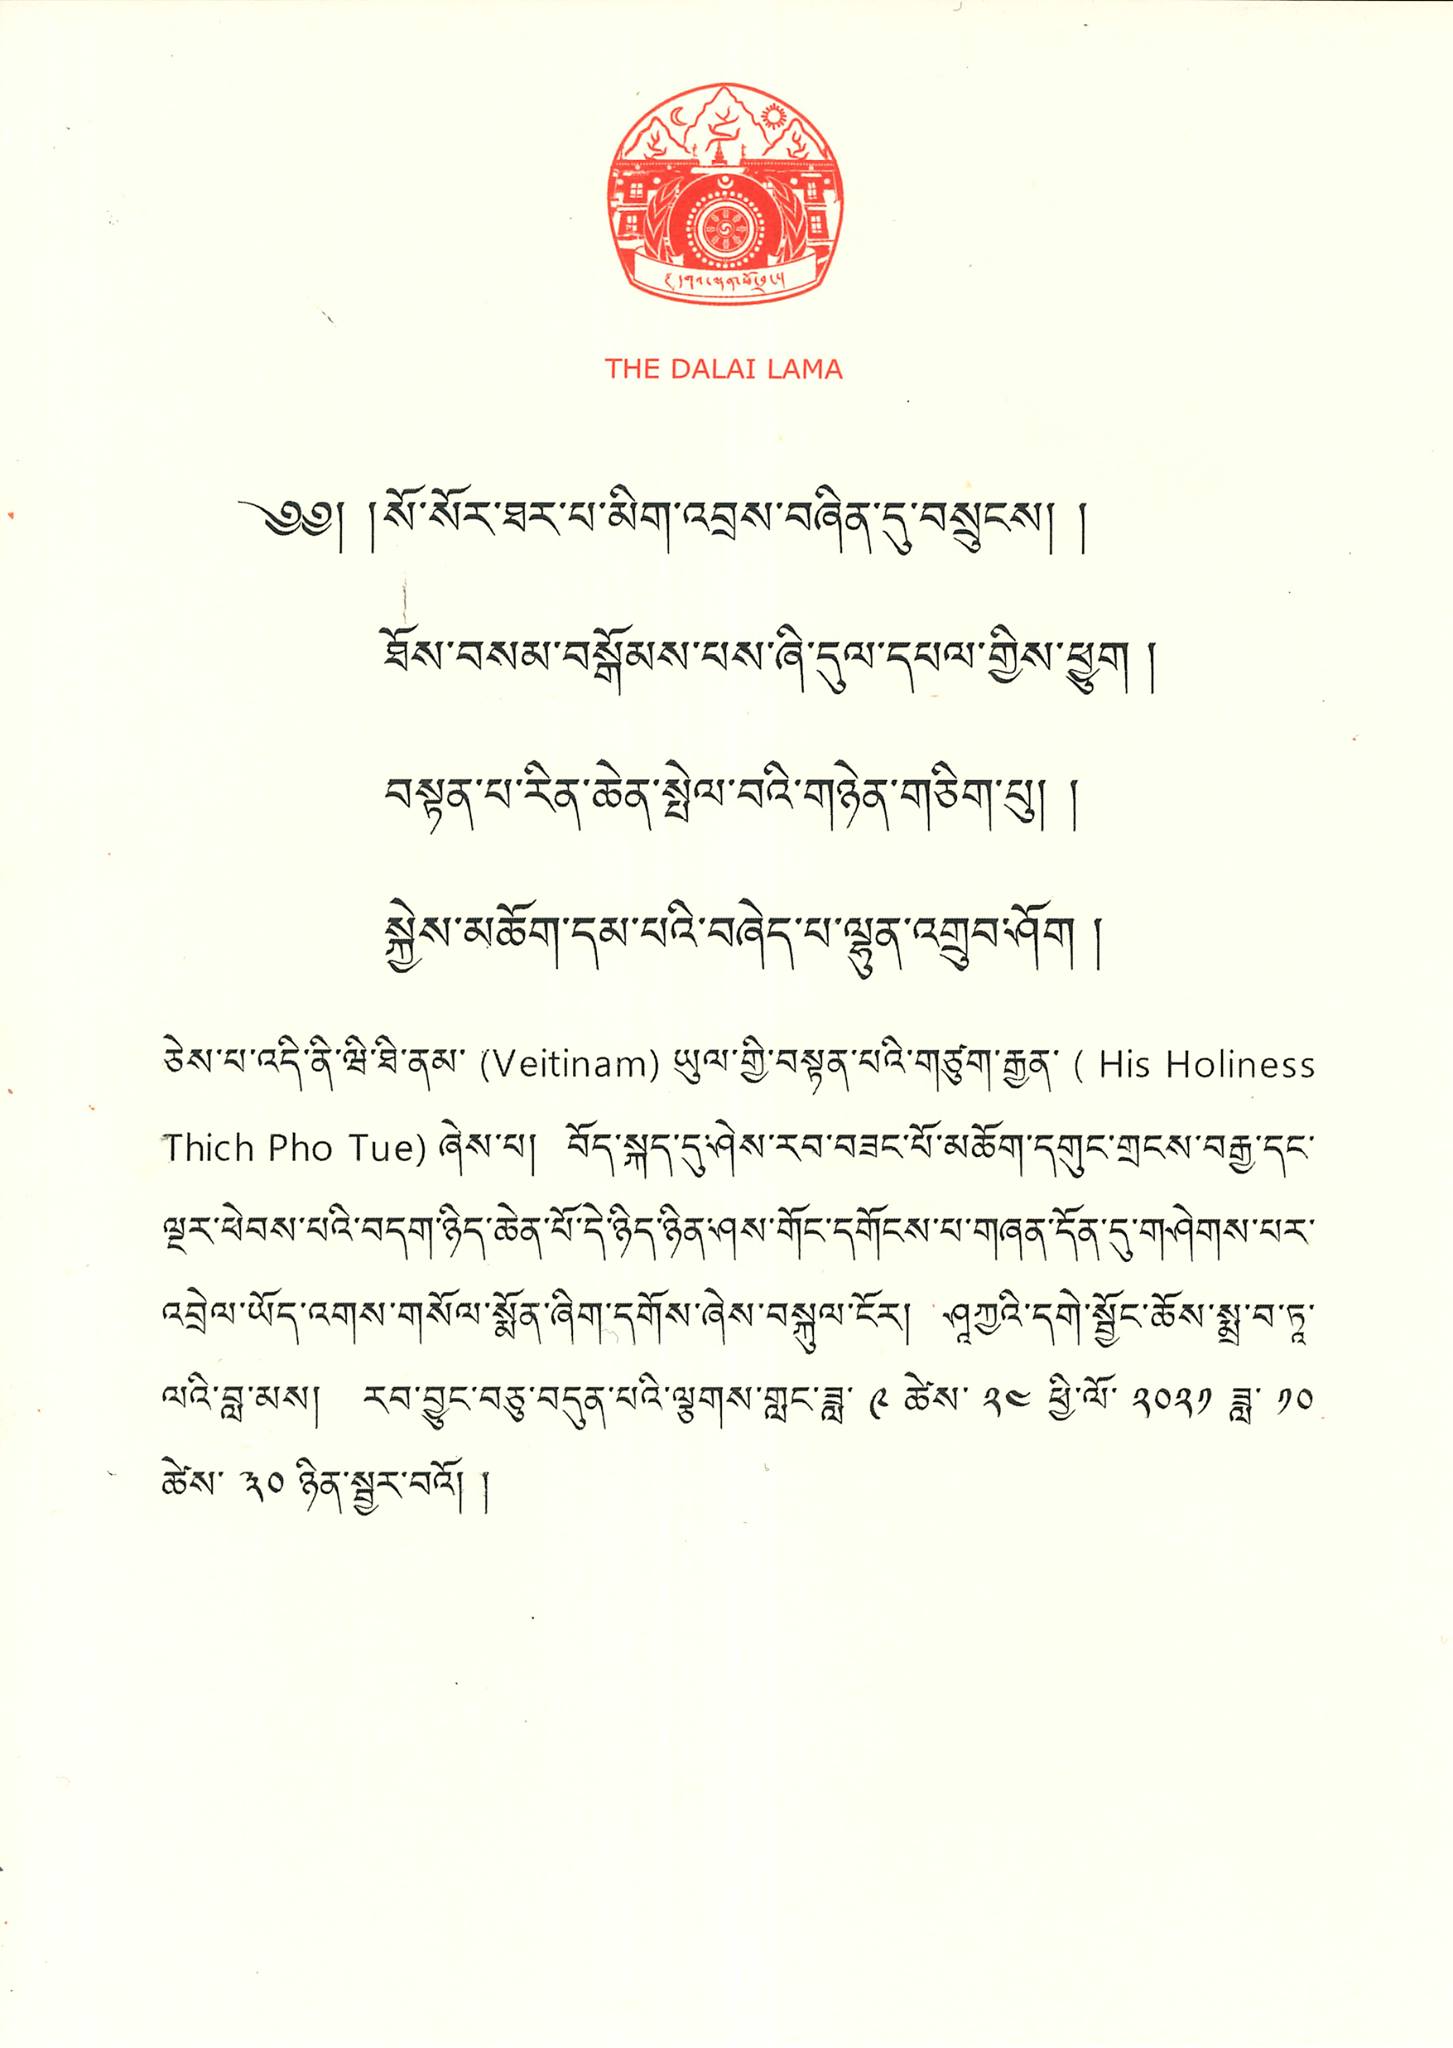 THE DALAI LAMA
༄༅། །སོ་སོར་ཐར་པ་མིག་འབྲས་བཞིན་དུ་བསྲུངས། །
ཐོས་བསམ་བསྒོམས་པས་ཞི་དུལ་དཔལ་གྱིས་ཕྱུག །
བསྟན་པ་རིན་ཆེན་སྤེལ་བའི་གཉེན་གཅིག་པུ། །
སྐྱེས་མཆོག་དམ་པའི་བཞེད་པ་ལྷུན་འགྲུབ་ཤོག །
ཅེས་པ་འདི་ནི་ཝི་ཐི་ནམ་ (Veitinam) ཡུལ་གྱི་བསྟན་པའི་གཙུག་རྒྱན་ ( His Holiness
Thich Pho Tue) ཞེས་པ། བོད་སྐད་དུ་ཤེས་རབ་བཟང་པོ་མཆོག་དགུང་གྲངས་བརྒྱ་དང་
ལྔར་ཕེབས་པའི་བདག་ཉིད་ཆེན་པོ་དེ་ཉིད་ཉིན་ཤས་གོང་དགོངས་པ་གཞན་དོན་དུ་གཤེགས་པར་
འབྲེལ་ཡོད་འགས་གསོལ་སྨོན་ཞིག་དགོས་ཞེས་བསྐུལ་ངོར། ཤཱཀྱའི་དགེ་སྦྱོང་ཆོས་སྨྲ་བ་ཏཱ་
ལའི་བླ་མས། རབ་བྱུང་བཅུ་བདུན་པའི་ལྕགས་གླང་ཟླ་ ༩ ཚེས་ ༢༤ ཕྱི་ལོ་ ༢༠༢༡ ཟླ་ ༡༠
ཚེས་ ༣༠ ཉིན་སྦྱར་བའོ། །